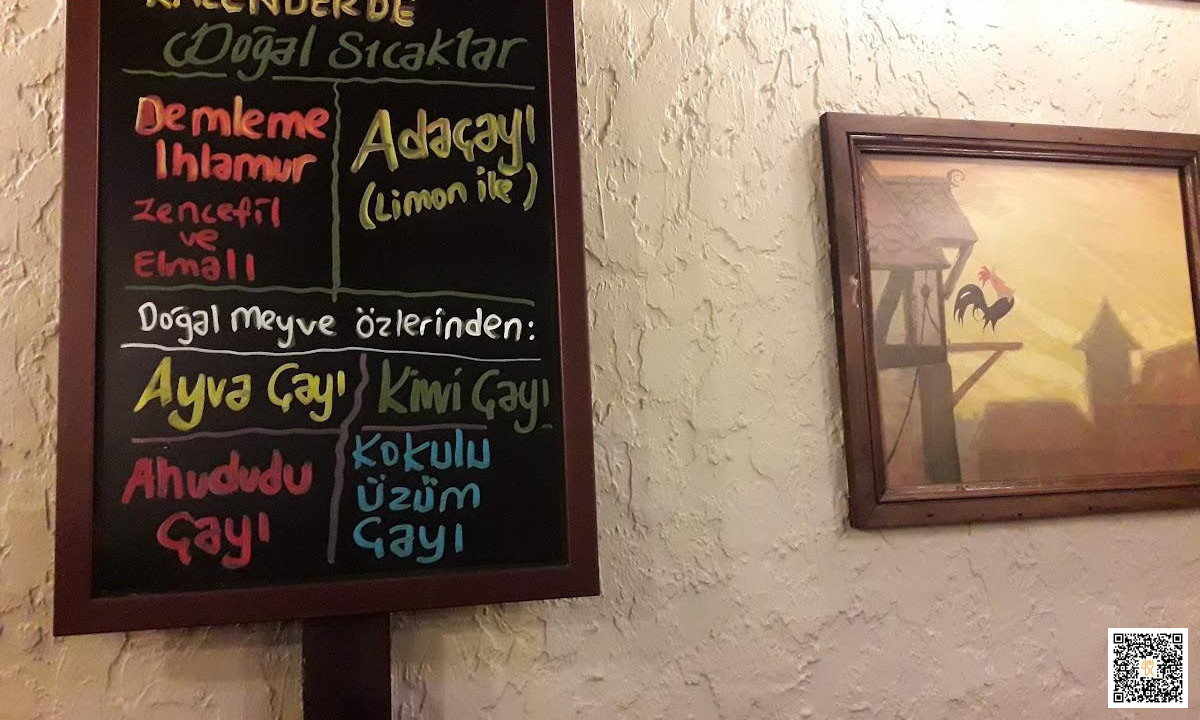 KALENDERDE
Doğal Sıcaklar
Demleme
Ihlamur
Zencefil
ve
Elmalı
Adaçayı
(Limon ile)
Doğal meyve özlerinden:
Ayva Çayı
Kivi Çayı
Ahududu
Çayı
Kokulu
Üzüm
Çayı